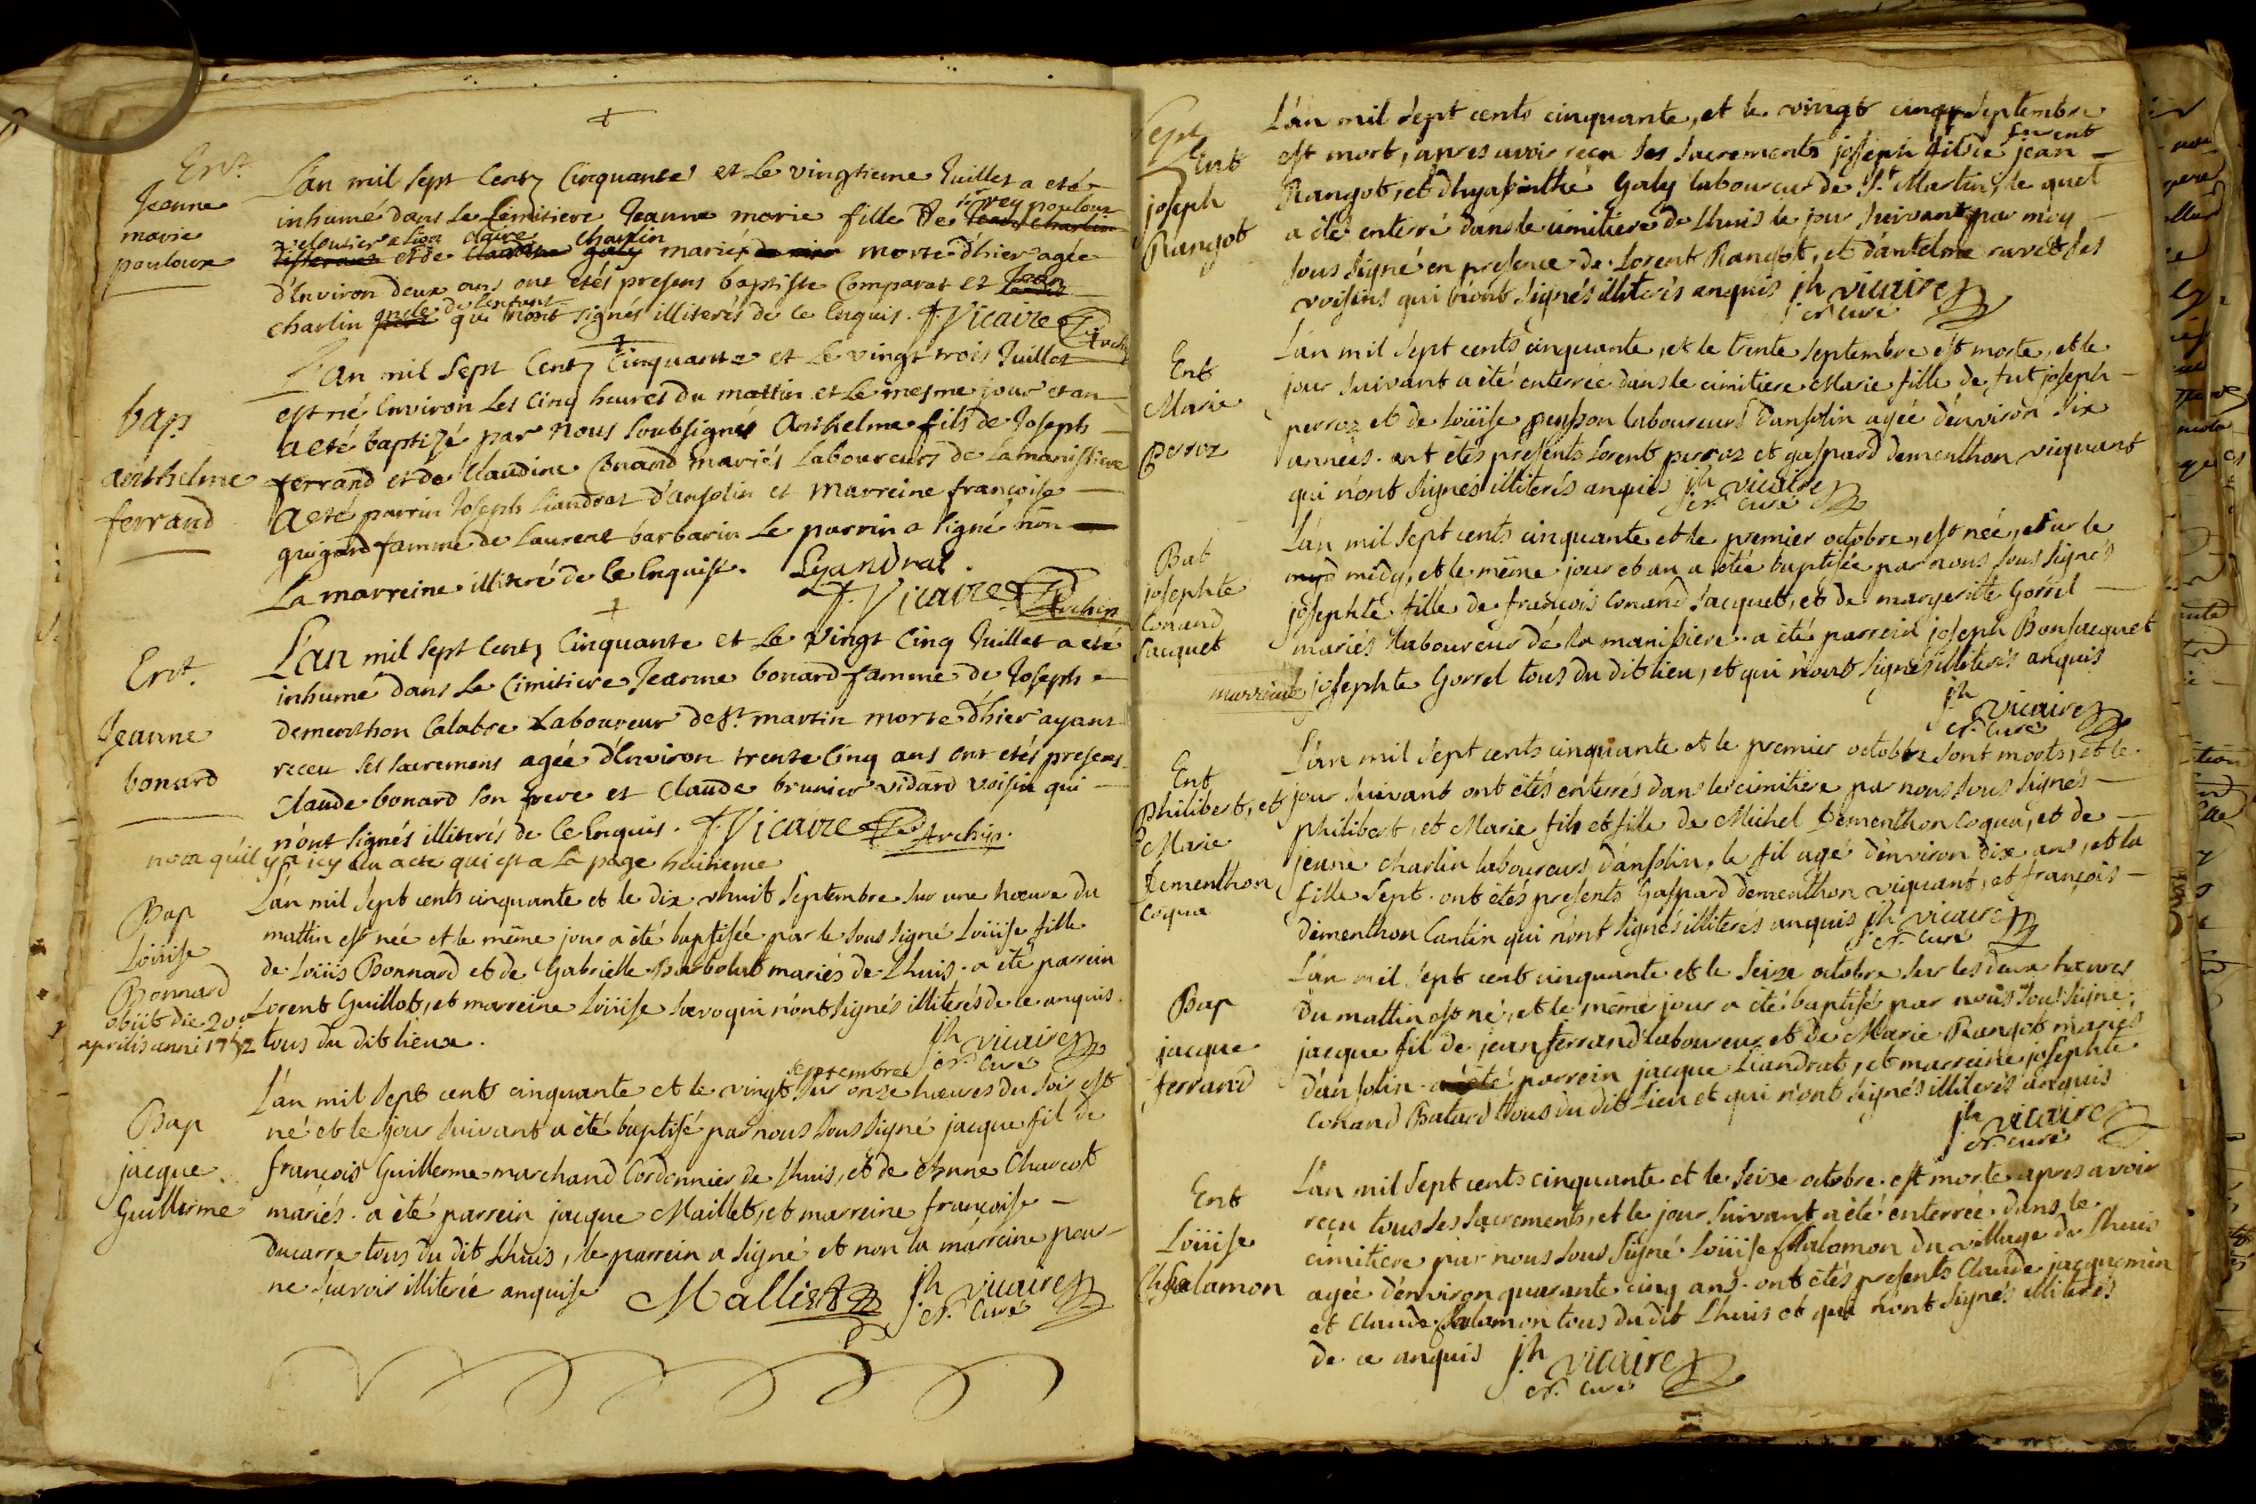 Ent.
Jeanne
marie
pouloux
L'an mil sept Cents Cinquante et Le vingtieme Juillet a eté
inhumé dans Le Cimitiere Jeanne marie fille de pierrey pouloux
veloutier a lion et de claire charlin mariés morte d'hier agée
d'Environ deux ans ont etés presens baptiste Comparat et Jean
charlin oncle de l'enfant qui n'ont signés illiterés de ce Enquis. J. Vicaire Archip.
bap
anthelme
ferrand
L'an mil Sept Cents Cinquante et Le vingt trois Juillet
est né Environ Les Cinq heures du mattin et Le mesme jour et an
a eté baptizé par Nous Soubsignés Anthelme fils de Joseph
ferrand et de Claudine Conand mariés Laboureurs de La manissiere
a eté parrin Joseph Liandrat d'ansolin et marreine françoise
guigard famme de Laurent barbarin Le parrin a signé non
La marreine illiteré de Ce Enquise. Lyandrat.
J. Vicaire Archip.
Ent.
Jeanne
bonard
L'an mil Sept Cents Cinquante et Le vingt Cinq Juillet a eté
inhumé dans Le Cimitiere Jeanne bonard famme de Joseph
dementhon Calabre Laboureur de St. martin morte d'hier ayant
receu ses sacremens agée d'Environ trente Cinq ans ont etés presens
Claude bonard son frere et Claude brunier vidard voisin qui
n'ont signés illiterés de Ce Enquis. J. Vicaire Archip.
nota qu'il y a icy un acte qui est a La page huitieme
Bap
Loüise
Bonnard
obiit die 20a
aprilis anni 1752
L'an mil sept cents cinquante et le dix ehuit septembre sur une hœure du
mattin est née et le même jour a été baptisée par le sous signé Loüise fille
de Loüis Bonnard et de Gabrielle Barbolat mariés de Lhuis. a été parrein
Lorent Guillot, et marreine Loüise sœvo qui n'ont signés illiterés de ce anquis
tous du dit lieux. jh vicaire
er. curé
Bap
jacque
Guillerme
L'an mil sept cents cinquante et le vingt septembre sur onze hœures du soir est
né et le jour suivant a été baptisé par nous sous signé jacque fil de
françois Guillerme marchand Cordonnier de Lhuis, et de Anne Charcot
mariés. a été parrein jacque Maillet, et marreine françoise
Ducarre tous du dit Lhuis, le parrein a signé et non la marreine pour
ne sçavoir illiterée anquise Mallier jh vicaire
er. curé
Sept
Ent
joseph
Rangot
L'an mil sept cents cinquante, et le vingt cinq septembre
est mort, apres avoir reçu ses sacrements joseph fils de jean
Rangot, et d'hyasinthe Galy laboureur de St. Martin, le quel
a été enterré dans le cimitiere de Lhuis le jour suivant par moy
sous signé en presence de Lorent Rangot, et d'antelme ravet ses
voisins qui n'ont signés illiterés anquis jh vicaire
er curé
Ent
Marie
perroz
L'an mil sept cents cinquante, et le trente septembre est morte, et le
jour suivant a été enterrée dans le cimitiere Marie fille de fut joseph
perroz et de Loüise peysson laboureurs d'ansolin agée d'environ six
années. ont étés presents Lorent perroz et gaspard dementhon viquant
qui n'ont signés illiterés anquis jh vicaire
er. curé
Bat
josephte
Conand
Jacquet
L'an mil sept cents cinquante et le premier octobre, est née, sur le
midy, et le même jour et an a étée baptisée par nous sous signés
josephte fille de françois Conand Jacquet, et de margeritte Gorrel
mariés laboureur de la manissiere. a été parrein joseph Bonjacquet
marreine josephte Gorrel tous du dit lieu, et qui n'ont signés illiterés anquis
jh vicaire
er. curé
Ent
Philibert, et
Marie
Dementhon
Coqua
L'an mil sept cents cinquante et le premier octobre sont morts, et le
jour suivant ont étés enterrés dans le cimitiere par nous sous signés
philibert, et Marie fils et fille de Michel Dementhon Coqua, et de
jeane charlin laboureurs d'ansolin, le fil agé d'environ dix ans, et la
fille sept. ont étés presents Gaspard dementhon viquant, et françois
dementhon Cantin qui n'ont signés illiterés anquis jh vicaire
er. curé
Bap
jacque
ferrand
L'an mil sept cent cinquante et le seize octobre sur les deux hœures
du mattin est né, et le même jour a été baptisé par nous sous signé,
jacque fil de jean ferrand laboureur et de Marie Rangot mariés
d'ansolin. a été parrein jacque Liandrat, et marreine josephte
Conand Batard tous du dit lieu et qui n'ont signés illiterés anquis
jh vicaire
er. curé
Ent
Loüise
Chalamon
L'an mil sept cents cinquante et le seize octobre. est morte apres avoir
reçu tous ses sacrements, et le jour suivant a été enterrée dans le
cimitiere par nous sous signé Loüise Chalamon du village de Lhuis
agée d'environ quarante cinq ans. ont étés presents Claude jacquemin
et Claude Chalamon tous du dit Lhuis et qui n'ont signés illiterés
de ce anquis jh vicaire
er. curé